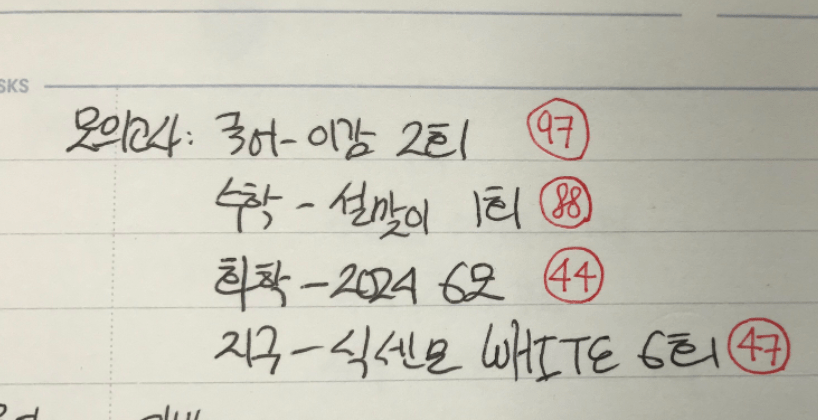 SKS
모의고사: 국어-이감 2회 97
수학 - 설맞이 1회 88
화학 - 2024 6모 44
지구 - 식센모 WHITE 6회 47